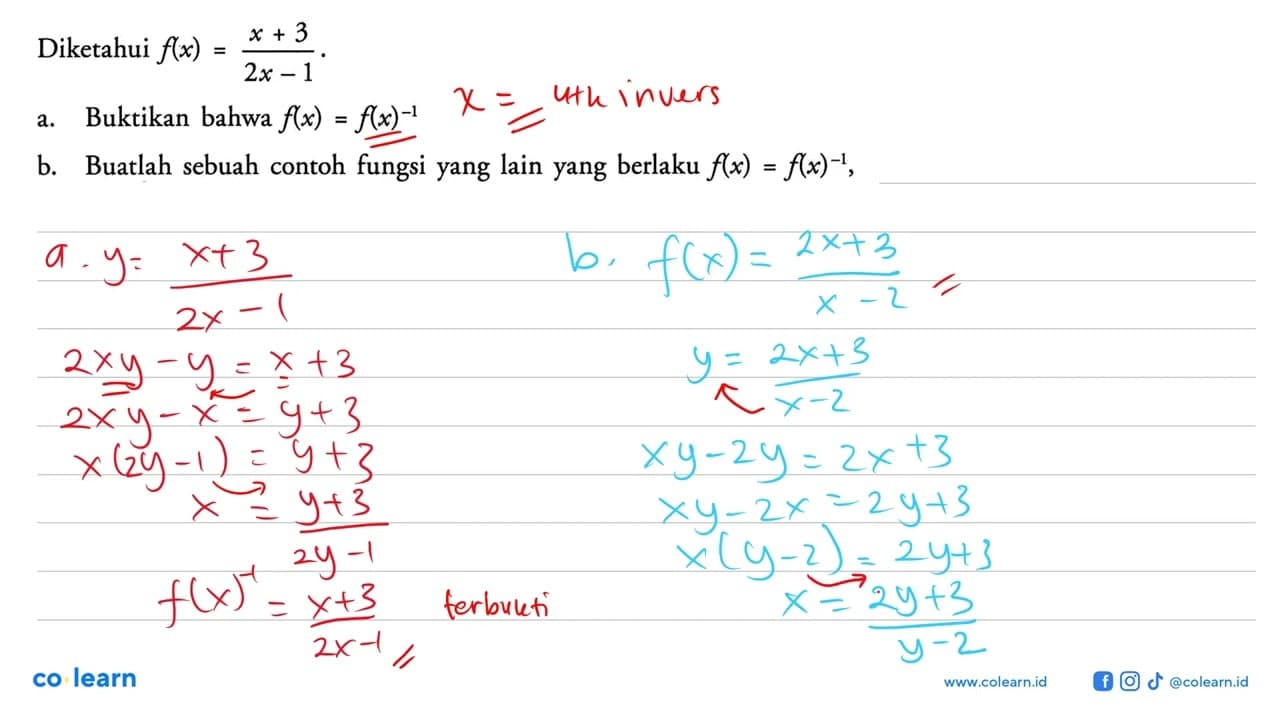 Diketahui f(x) = (x + 3)/(2x – 1).
a. Buktikan bahwa f(x) = f(x)⁻¹
x = utk invers
b. Buatlah sebuah contoh fungsi yang lain yang berlaku f(x) = f(x)⁻¹,
a. y = (x+3)/(2x-1)
2xy - y = x + 3
2xy - x = y + 3
x(2y-1) = y + 3
x = (y+3)/(2y-1)
f(x)⁻¹ = (x+3)/(2x-1) terbukti
b. f(x) = (2x+3)/(x-2)
y = (2x+3)/(x-2)
xy - 2y = 2x + 3
xy - 2x = 2y + 3
x(y-2) = 2y + 3
x = (2y+3)/(y-2)
co learn
www.colearn.id @colearn.id